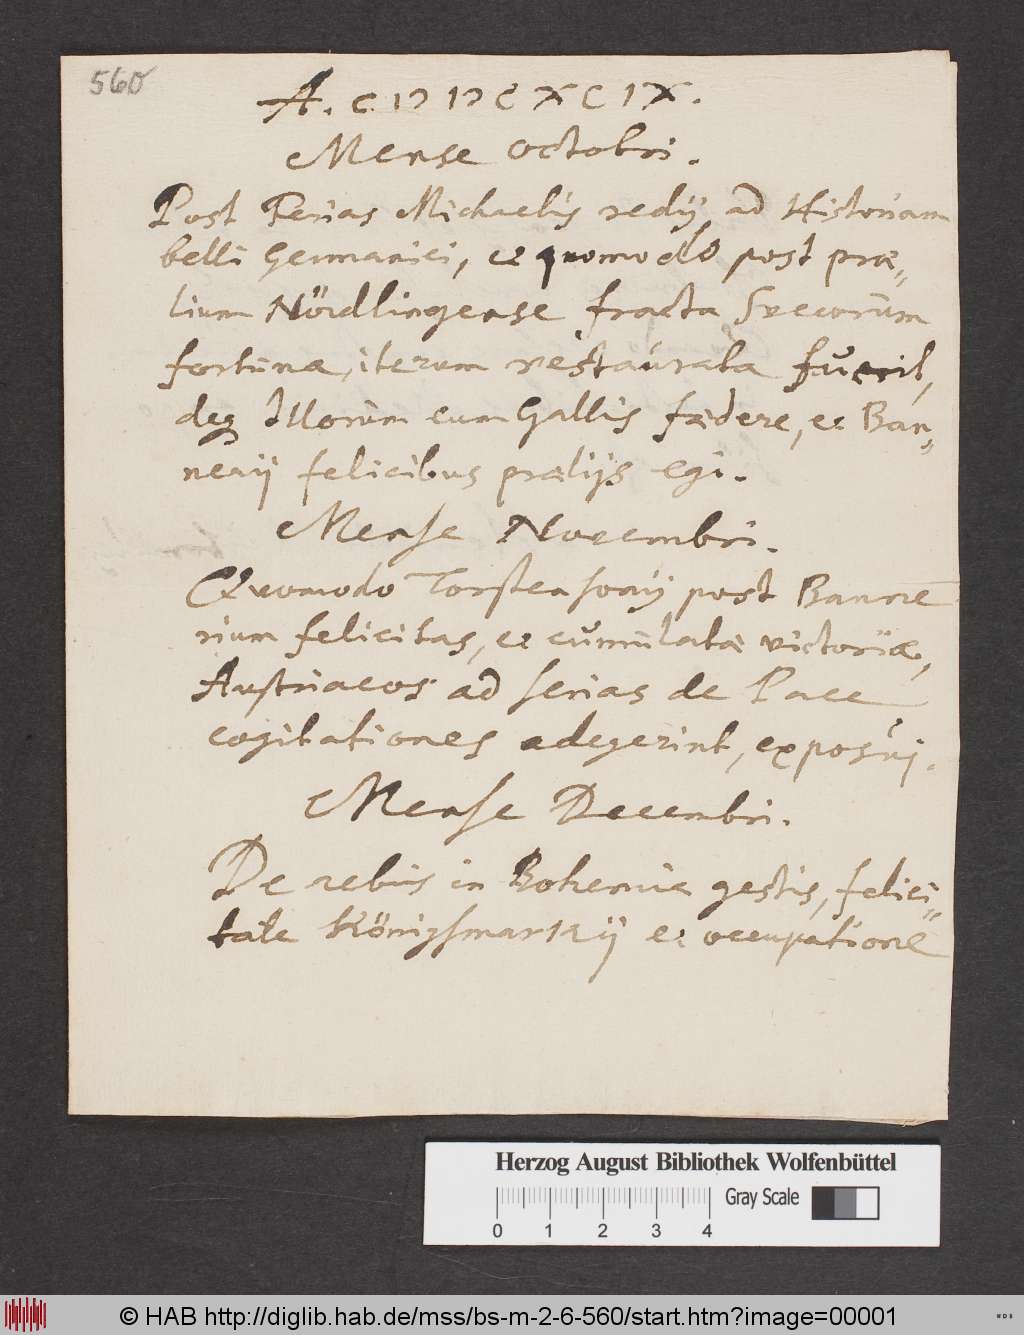 560
A. C IƆ IƆ C XC IX.
Mense octobri.
Post Ferias Michaelis redij ad Historiam
belli Germanici, et quomodo post præ„
lium Nördlingense fracta Svecorum
fortuna, iterum restaurata fuerit,
deq Illorum cum Gallis fædere, et Ban„
nerij felicibus prælijs egi.
Mense Novembri.
Quomodo Torstensonij post Banne
rium felicitas, et cumulatæ victoriæ,
Austriacos ad serias de Pace
cogitationes adegerint, exposui.
Mense Decembri.
De rebus in Bohemia gestis, felici„
tate Königsmarkij et occupatione
Herzog August Bibliothek Wolfenbüttel
Gray Scale
0 1 2 3 4
© HAB http://diglib.hab.de/mss/bs-m-2-6-560/start.htm?image=00001